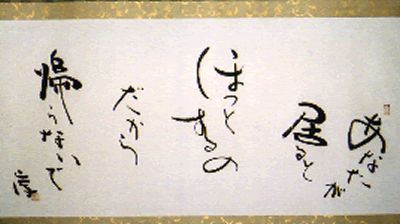 あなたが
居ると
ほっと
するの
だから
帰らないで